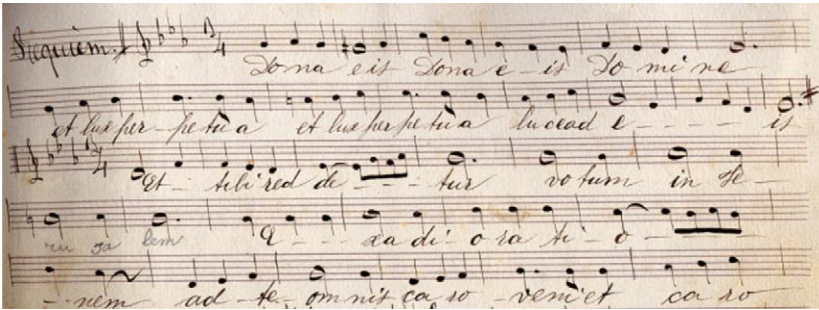 Requiem. Dona eis Dona e-is Do mi ne
et lux per-petua et lux perpetua luceat e - - - - is
Et - tibi red de - - - tur votum in Je-
ru sa lem E - - - xa di-o ra ti-o-
- - nem ad-te-omnis caro-veniet caro